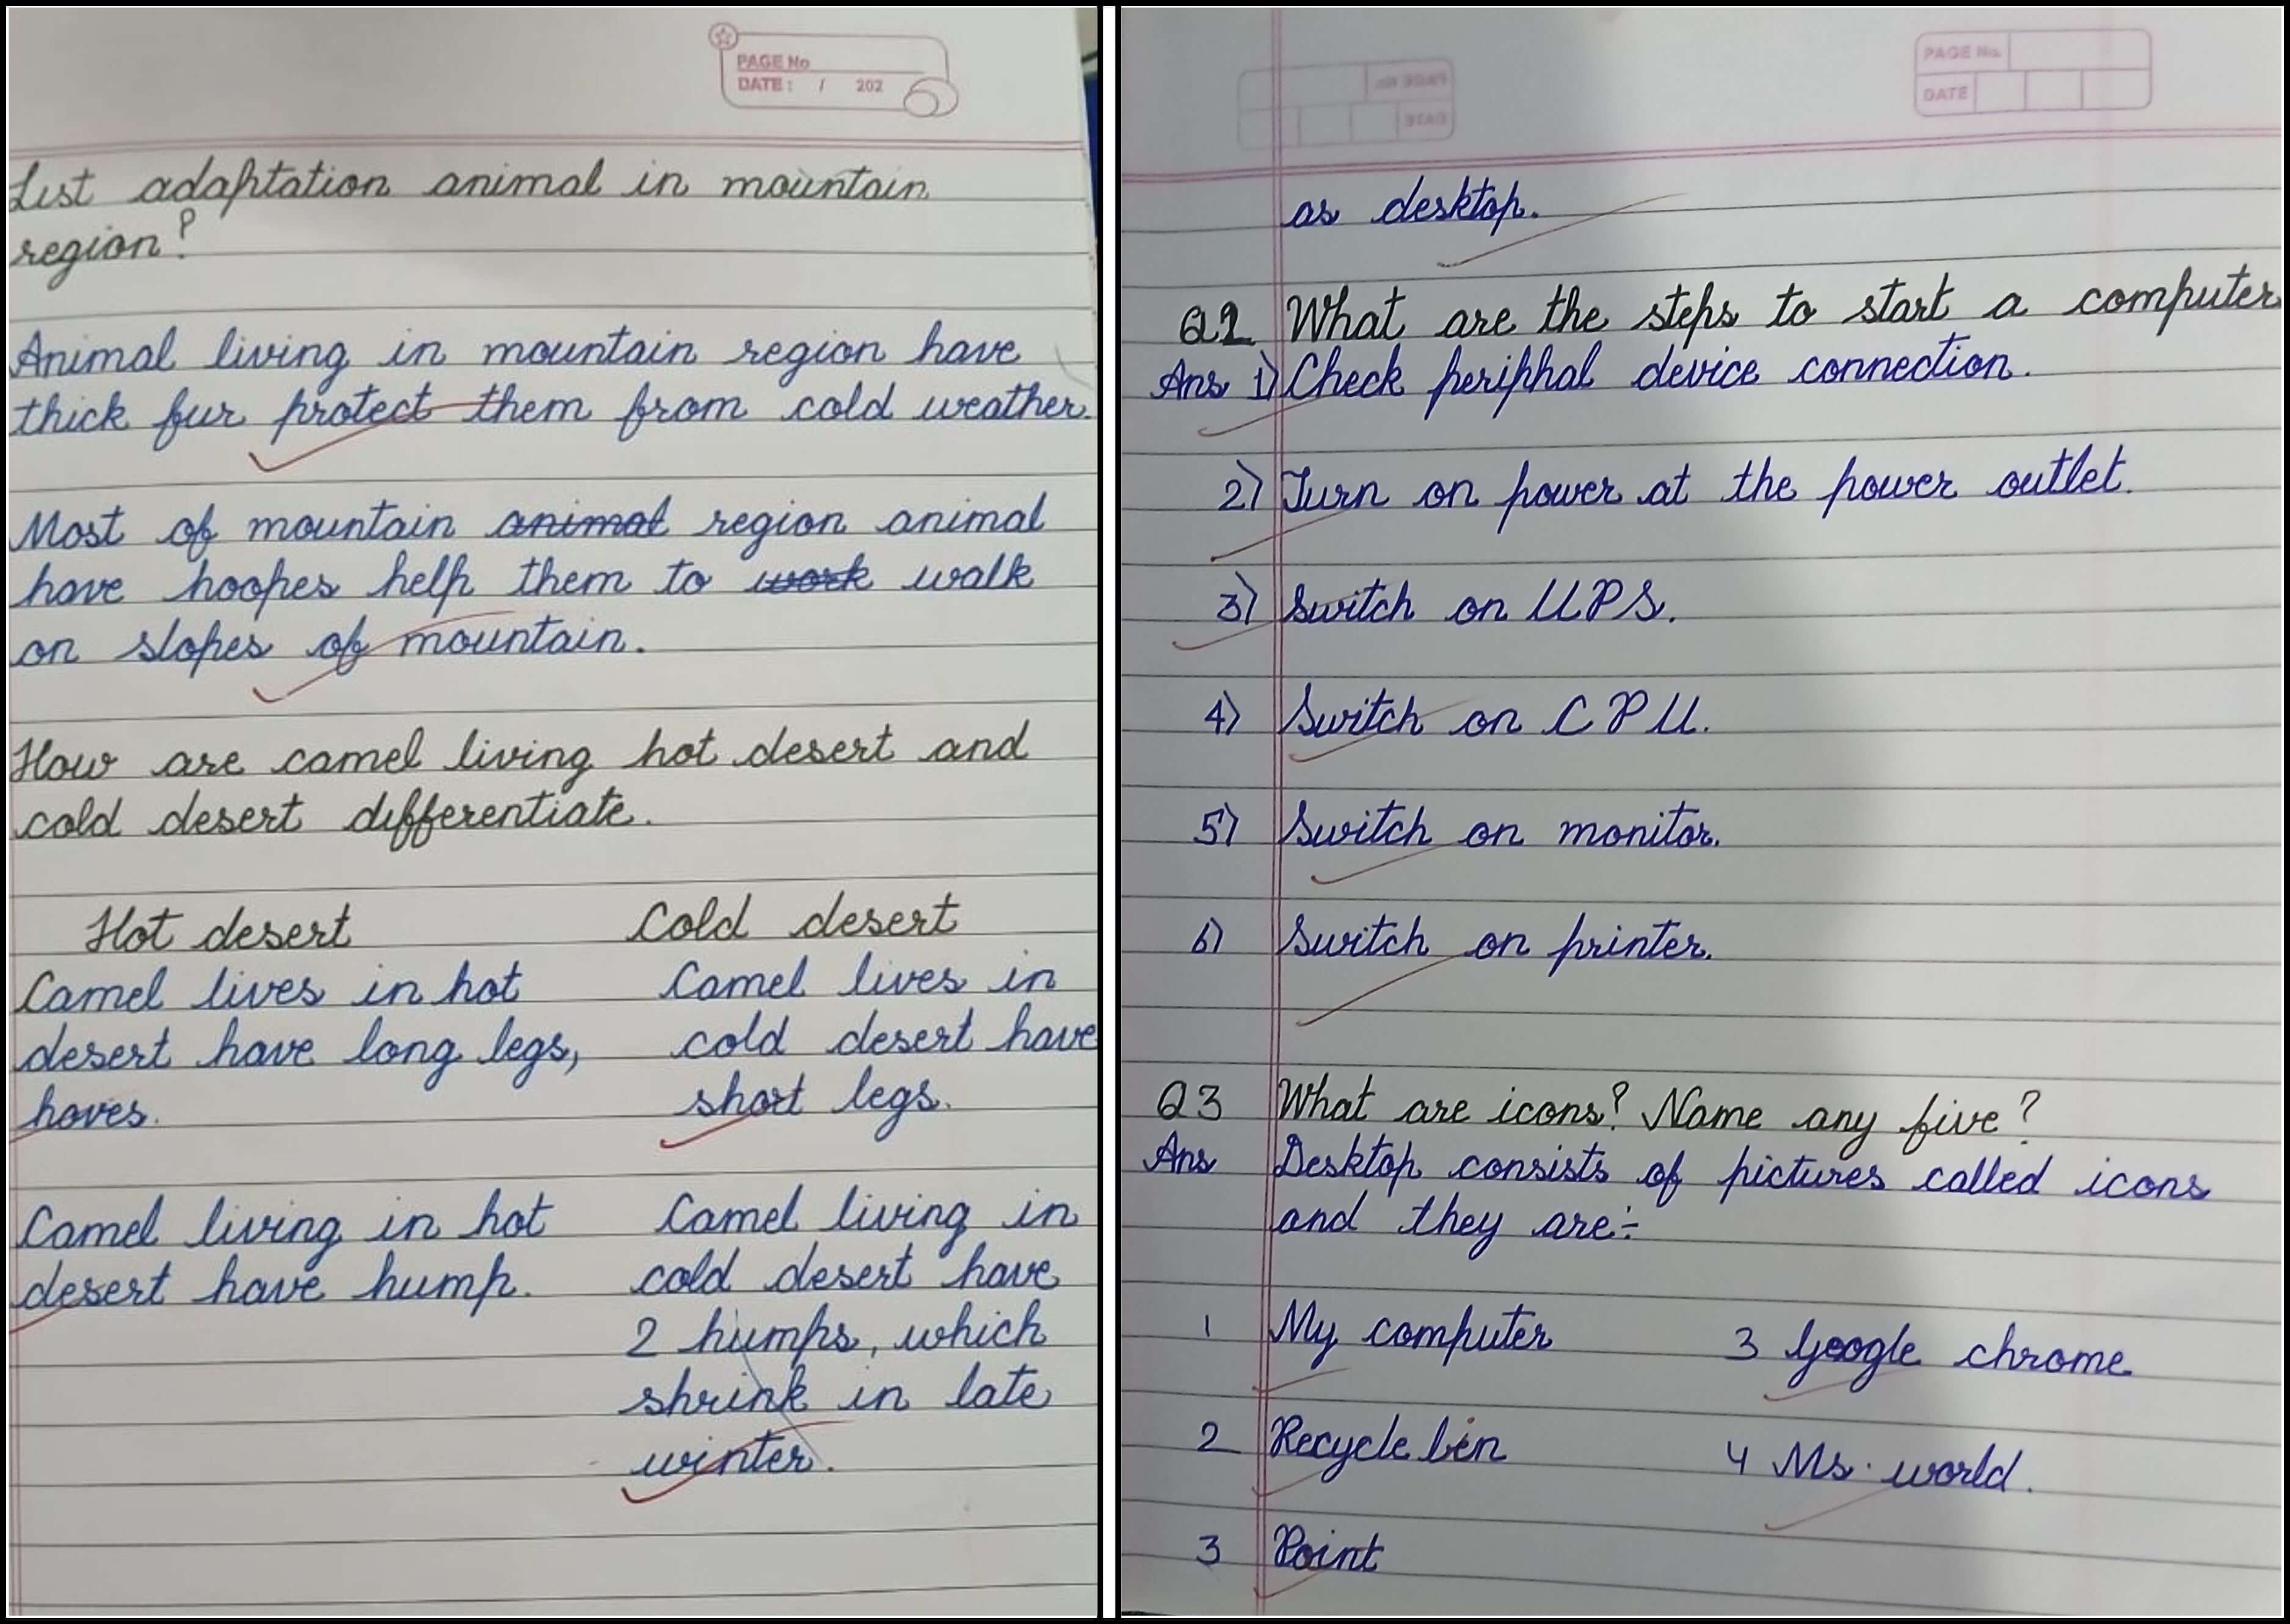 PAGE No
DATE : / 202
List adaptation animal in mountain
region?
Animal living in mountain region have
thick fur protect them from cold weather.
Most of mountain animal region animal
have hoopes help them to work walk
on slopes of mountain.
How are camel living hot desert and
cold desert differentiate.
Hot desert
Camel lives in hot
desert have long legs,
hoves.
Camel living in hot
desert have hump.
Cold desert
Camel lives in
cold desert have
short legs.
Camel living in
cold desert have
2 humps, which
shrink in late
winter.
PAGE No.
DATE
as desktop.
Q2 What are the steps to start a computer
Ans 1) Check periphal device connection.
2) Turn on power at the power outlet.
3) Switch on UPS.
4) Switch on CPU.
5) Switch on monitor.
6) Switch on printer.
Q3 What are icons? Name any five?
Ans Desktop consists of pictures called icons
and they are:-
1 My computer
2 Recycle bin
3 Point
3 Google chrome
4 Ms. world.